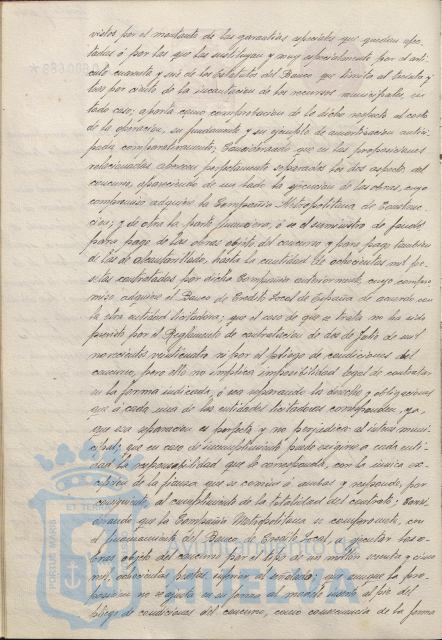 vistos por el montante de las garantías especiales que queden afec-
tadas ó por las que las sustituyan y muy especialmente por el artí-
culo cuarenta y seis de los Estatutos del Banco que limita al treinta y
tres por ciento de la incautacion de los recursos municipales, en
todo caso; aparte como comprobacion de lo dicho respecto al costo
de la operacion, su fundamento y su ejemplo de amortizacion antici-
pada comparativamente; Considerando que en las proposiciones
relacionadas aparecen perfectamente separados los dos aspectos del
concurso, apareciendo de un lado la ejecucion de las obras, cuyo
compromiso adquiere la Compañía Metropolitana de Construc-
cion; y de otro la parte financiera, ó sea el suministro de fondos
para pago de las obras objeto del concurso y para pago tambien
de las de alcantarillado, hasta la cantidad de ochocientas mil pe-
setas contratadas por dicha Compañía anteriormente, cuyo compro-
miso adquiere el Banco de Credito Local de España de acuerdo con
la otra entidad licitadora; que el caso de que se trata no ha sido
previsto por el Reglamento de contratacion de dos de Julio de mil
novecientos veinticuatro ni por el pliego de condiciones del
concurso, pero ello no implica imposibilidad legal de contratar
en la forma indicada, ó sea separando los derechos y obligaciones
que á cada una de las entidades licitadoras corresponden, ya
que esa separacion es perfecta y no perjudica al interes muni-
cipal; que en caso de incumplimiento puede exigirse a cada enti-
dad la responsabilidad que le corresponda, con la unica ex-
cepcion de la fianza que es comun á ambas y responde, por
consiguiente al cumplimiento de la totalidad del contrato; Consi-
derando que la Compañía Metropolitana se compromete, con
el financiamiento del Banco de Credito Local, a ejecutar las o-
bras objeto del concurso por el tipo de un millon sesenta y cinco
mil ochocientas pesetas, superior al señalado; que aunque la pro-
posicion no se ajusta en su forma al modelo inserto al pie del
pliego de condiciones del concurso, como consecuencia de la forma
ET TERRA
PORTUS MARIS